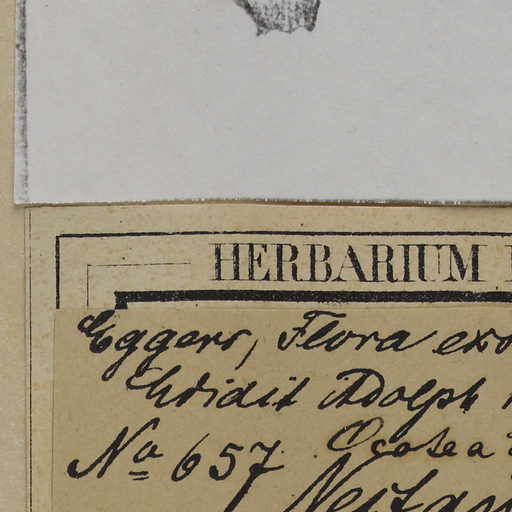 HERBARIUM
Eggers, Flora exo
Edidit Adolph
No 657. Ocotea